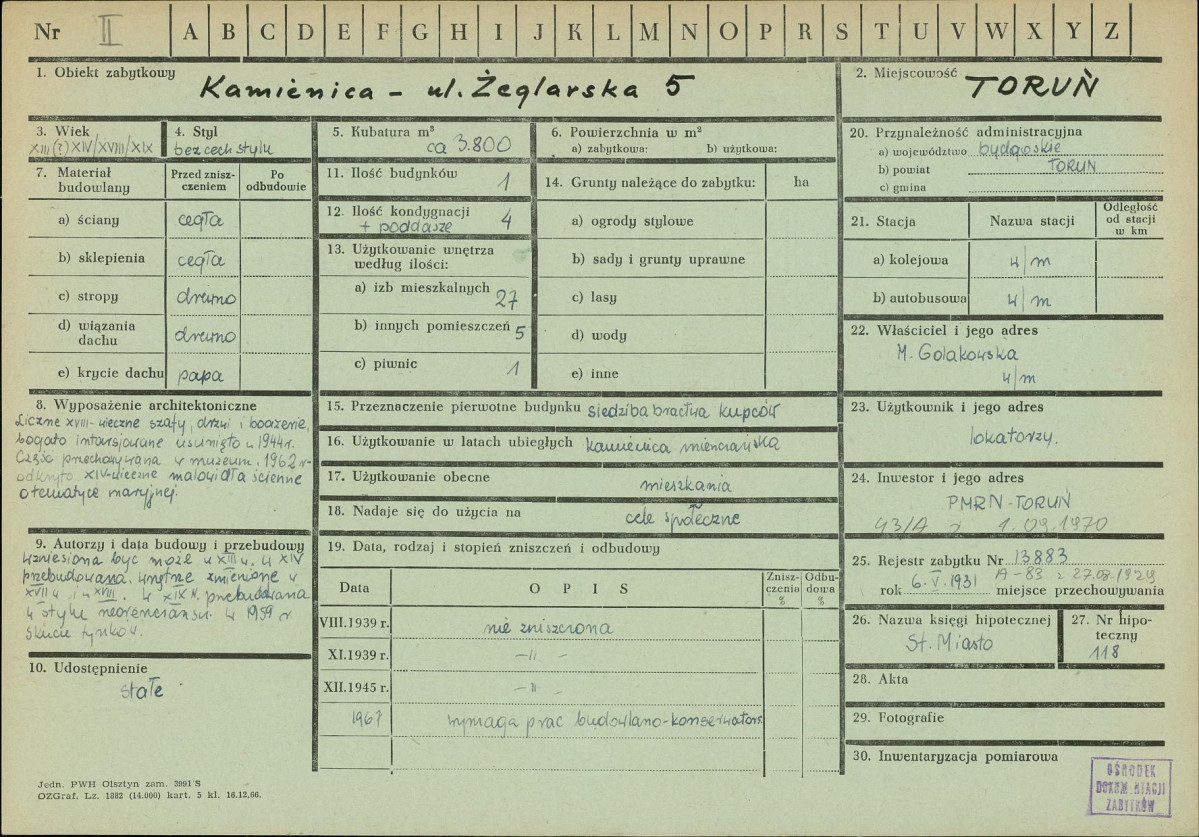 Nr II A B C D E F G H I J K L M N O P R S T U V W X Y Z
1. Obiekt zabytkowy
Kamienica - ul. Żeglarska 5
2. Miejscowość TORUŃ
3. Wiek
XIII(?) XIV/XVIII/XIX
4. Styl
bez cech stylu
5. Kubatura m³
ca 3.800
6. Powierzchnia w m²
a) zabytkowa: b) użytkowa:
7. Materiał
budowlany
Przed znisz-
czeniem
Po
odbudowie
a) ściany cegła
b) sklepienia cegła
c) stropy drewno
d) wiązania
dachu drewno
e) krycie dachu papa
11. Ilość budynków 1
12. Ilość kondygnacji 4
+ poddasze
13. Użytkowanie wnętrza
według ilości:
a) izb mieszkalnych 27
b) innych pomieszczeń 5
c) piwnic 1
14. Grunty należące do zabytku: ha
a) ogrody stylowe
b) sady i grunty uprawne
c) lasy
d) wody
e) inne
8. Wyposażenie architektoniczne
Liczne XVIII-wieczne szafy, drzwi i boazerie,
bogato intarsjowane usunięto w 1944 r.
Część przechowywana w muzeum. 1962 r-
odkryto XIV-wieczne malowidła ścienne
o tematyce maryjnej.
9. Autorzy i data budowy i przebudowy
Wzniesiona być może w XIII w. w XIV
przebudowana. Wnętrze zmienione w
XVII w. i w XVIII. W XIX w. przebudowana
w stylu neorenesansu. W 1959 r
skucie tynków.
10. Udostępnienie
stałe
15. Przeznaczenie pierwotne budynku siedziba bractwa kupców
16. Użytkowanie w latach ubiegłych kamienica mieszczańska
17. Użytkowanie obecne mieszkania
18. Nadaje się do użycia na cele społeczne
19. Data, rodzaj i stopień zniszczeń i odbudowy
Data O P I S Znisz-
czenia
% Odbu-
dowa
%
VIII.1939 r. nie zniszczona
XI.1939 r. -"-
XII.1945 r. -"-
1967 wymaga prac budowlano-konserwators.
20. Przynależność administracyjna
a) województwo bydgoskie
b) powiat TORUŃ
c) gmina
21. Stacja Nazwa stacji Odległość
od stacji
w km
a) kolejowa w/m
b) autobusowa w/m
22. Właściciel i jego adres
M. Golakowska
w/m
23. Użytkownik i jego adres
lokatorzy.
24. Inwestor i jego adres
PMRN-TORUŃ
43/A z 1.09.1970
25. Rejestr zabytku Nr 13883
A-83 z 27.08.1929
rok 6.V.1931 miejsce przechowywania
26. Nazwa księgi hipotecznej
St. Miasto
27. Nr hipo-
teczny
118
28. Akta
29. Fotografie
30. Inwentaryzacja pomiarowa
Jedn. PWH Olsztyn zam. 3991 S
OZGraf. Lz. 1882 (14.000) kart. 5 kl. 16.12.66.
OŚRODEK
DOKUMENTACJI
ZABYTKÓW